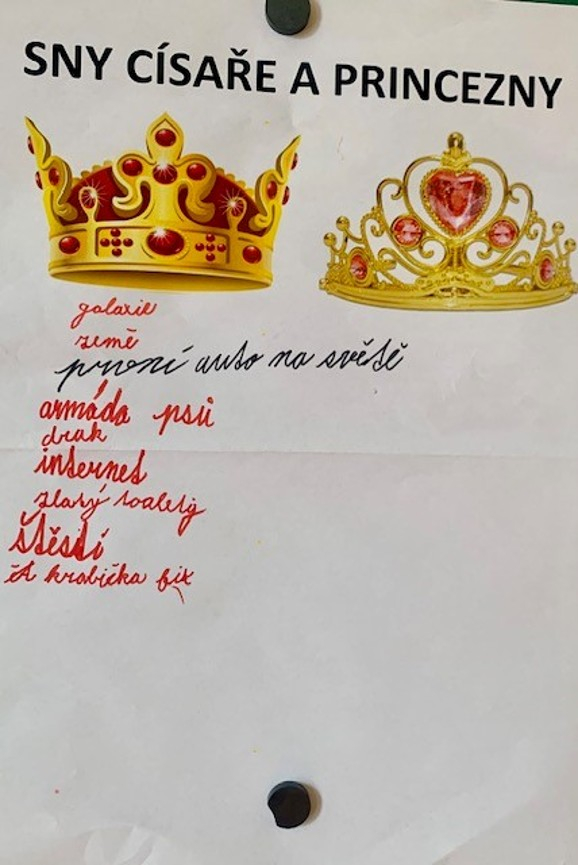 SNY CÍSAŘE A PRINCEZNY
galaxie
země
první auto na světě
armáda psů
drak
internet
zlatý toalety
štěstí
krabička fix